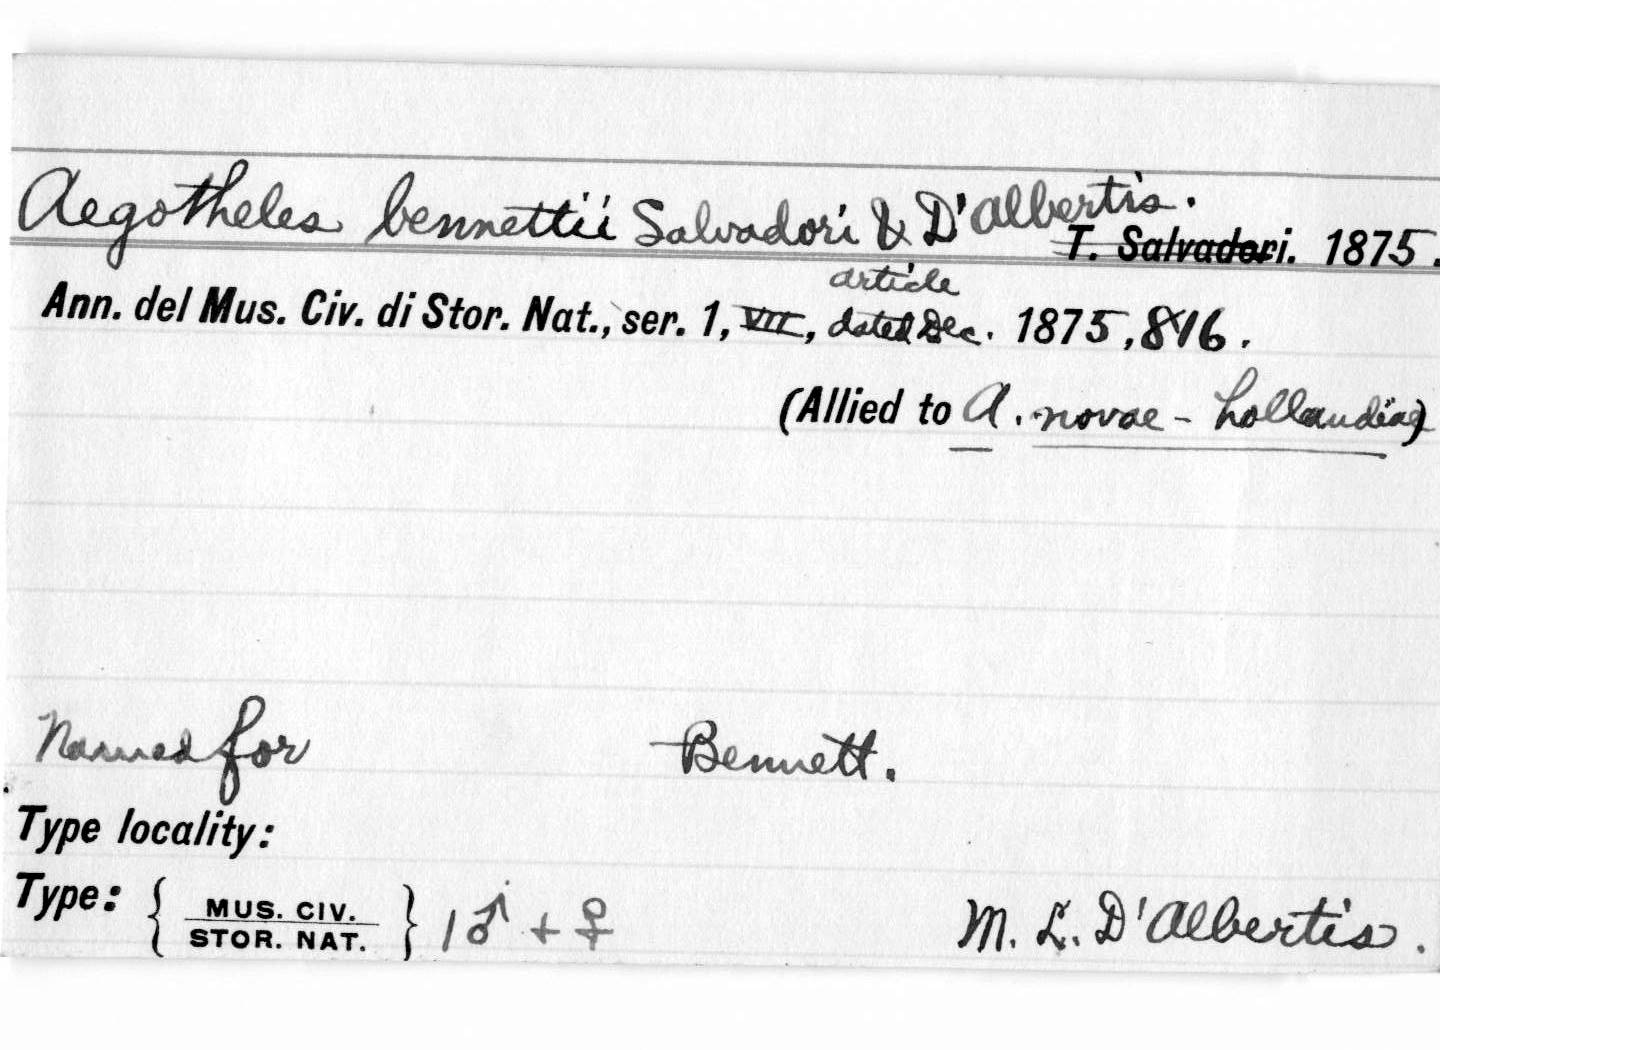 Aegotheles bennettii Salvadori & D'Albertis.
T. Salvadori. 1875.
article
Ann. del Mus. Civ. di Stor. Nat., ser. 1, VII, dated Dec. 1875, 816.
(Allied to A. novae-hollandiae)
Named for Bennett.
Type locality:
Type: { MUS. CIV.
STOR. NAT. } 1♂ + ♀ M. L. D'Albertis.